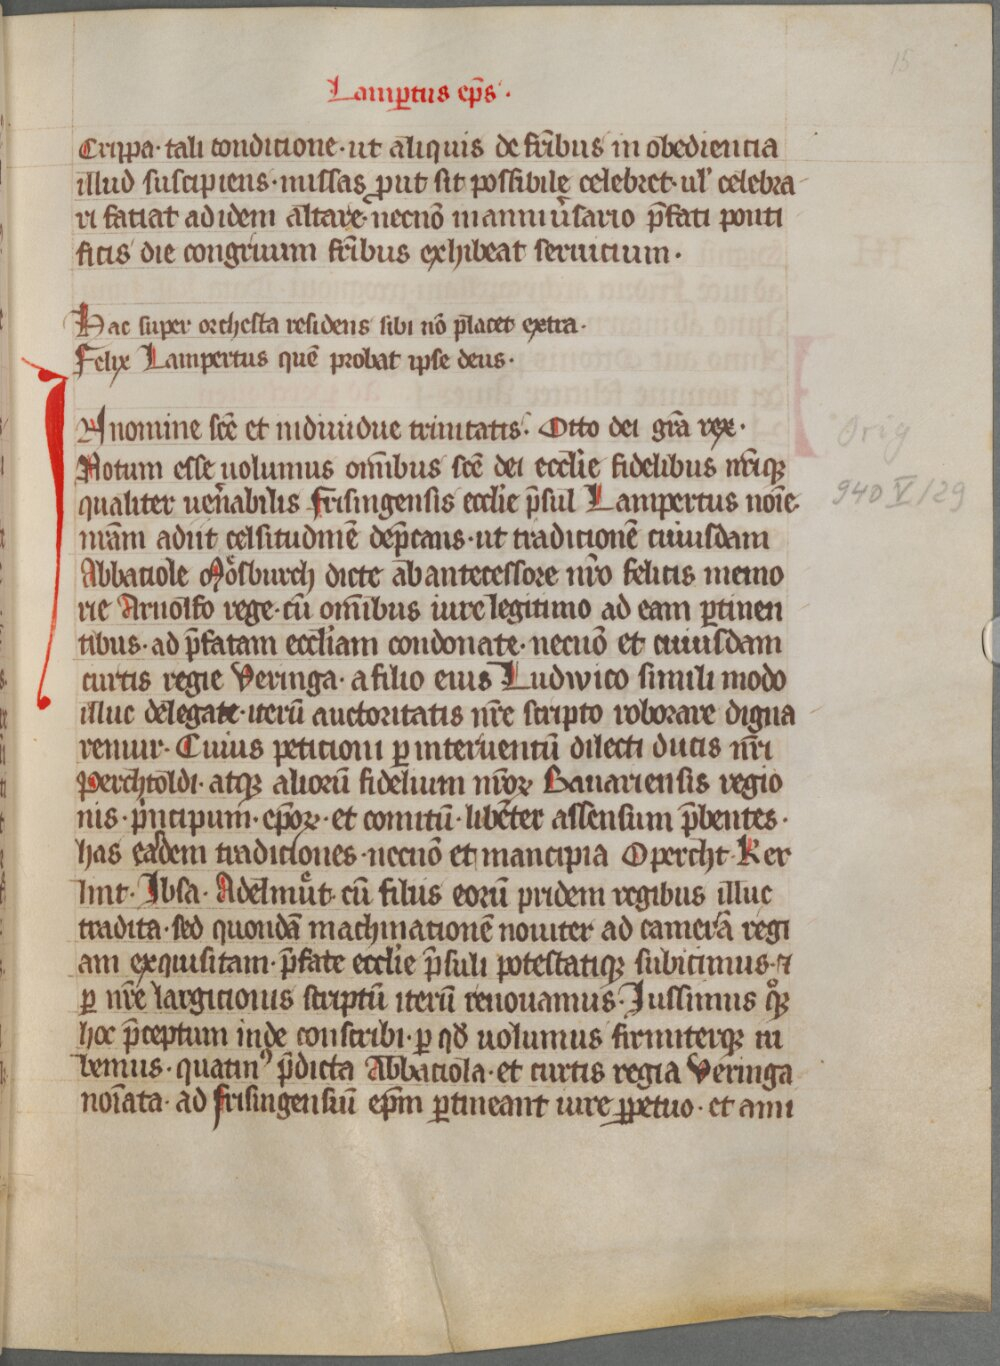 15
Lamꝑtus ep̄s .
Crippa · tali condicione · ut aliquis de fr̄ibus in obediencia
illud suscipiens · missas ꝓut sit possibile celebret · ul' celebra
ri faciat ad idem altare · necnō in anniu̓sario p̄fati ponti
ficis die congruum fr̄ibus exhibeat seruicium .
Hac super orchesta residens sibi nō placet extra .
Felix Lampertus quē probat ipse deus .
In nomine sc̄e et indiuidue trinitatis . Otto dei gr̄a rex .
Notum esse uolumus om̄ibus sc̄e dei eccl'ie fidelibus nr̄isqꝫ
qualiter uen̓abilis frisingensis eccl'ie p̄sul Lampertus noīe
nr̄am adiit celsitudinē dep̄cans · ut tradicionē cuiusdam
Abbaciole Mosburch dicte ab antecessore nr̄o felicis memo
rie Arnolfo rege · cū om̄ibus iure legitimo ad eam ꝑtinen
tibus · ad p̄fatam eccl̄iam condonate · necnō et cuiusdam
curtis regie Veringa · a filio eius Ludwico simili modo
illuc delegate · iterū auctoritatis nr̄e scripto roborare digna
remur · Cuius peticioni ꝑ interuentū dilecti ducis nr̄i
Perchtoldi · atqꝫ aliorū fidelium nr̄oꝝ Bauariensis regio
nis · p̓ncipum · ep̄oꝝ · et comitū · libēter assensum p̄bentes .
has easdem tradiciones · necnō et mancipia Opercht · Ker
lint · Ibsa · Adelmuͦt · cū filiis eorū pridem regibus illuc
tradita · sed quondā machinationē nouiter ad camerā regi
am exquisitam · p̄fate eccl'ie p̄suli potestatiqꝫ subicimus · ⁊
ꝑ nr̄e largicionis scriptū iterū renouamus · Iussimus qͦqꝫ
hoc p̄ceptum inde conscribi · ꝑ qd̄ uolumus firmiterqꝫ iu
bemus · quatinꝰ p̄dicta Abbaciola · et curtis regia Veringa
noīata · ad frisingensiū ep̄m ꝑtineant iure ꝑpetuo · et am
Orig
940 V/29